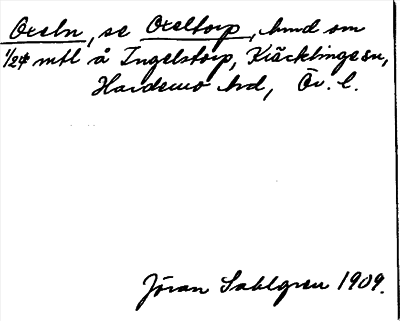 Oxeln, se Oxeltorp, hmd om
1/24 mtl å Ingelstorp, Kräcklinge sn,
Hardemo hd, Ör. l.
Jöran Sahlgren 1909.